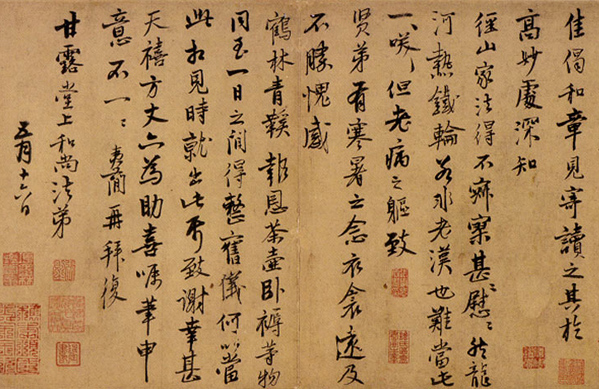 佳偈和章見寄讀之其於
高妙處深知
徑山家法得不寂寞甚〻慰〻然龍
河熱鐵輪若非老漢也難當此
一咲但老病之軀致
賢弟有寒暑之念衣衾遠及
不勝愧感
鶴林青鞋報恩茶壺臥褥等物
同至一日之間得整舊儀何以當
此相見時就出此帋致謝幸甚
天禧方丈亦為助喜囑筆申
意不一〻夷簡再拜復
甘露堂上和尚法弟
五月十六日